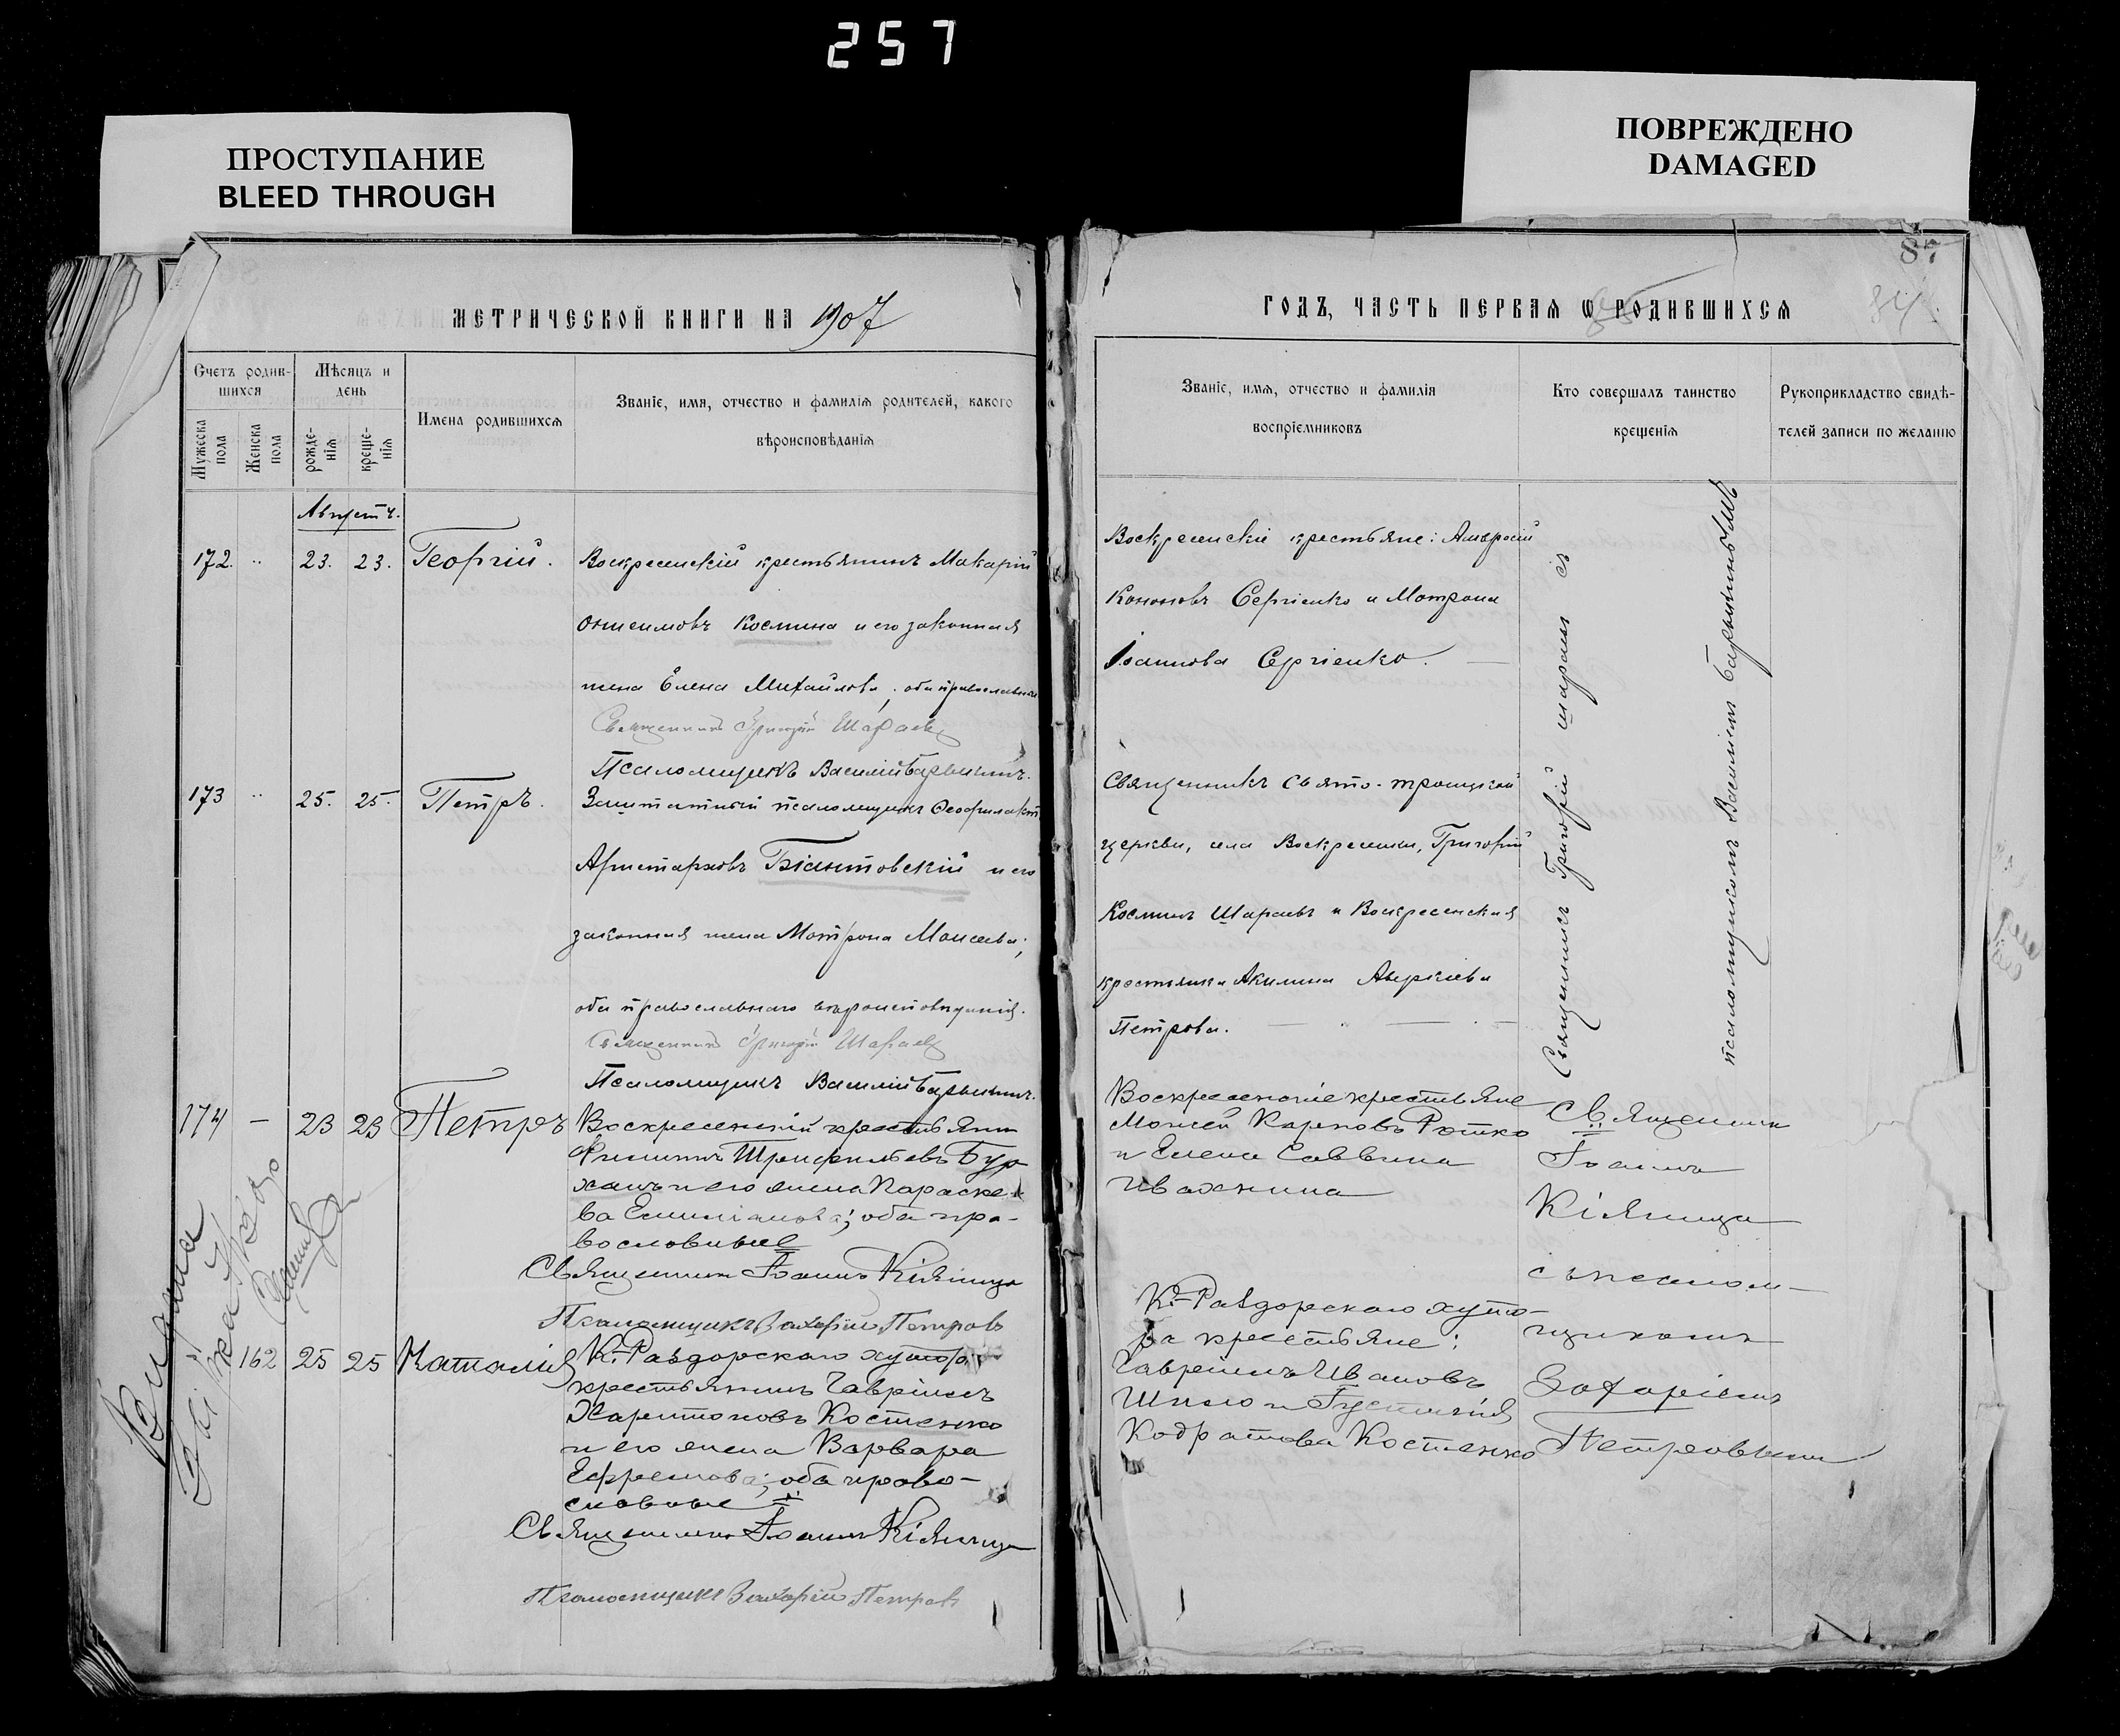 257
ПРОСТУПАНИЕ
BLEED THROUGH
ПОВРЕЖДЕНО
DAMAGED
87
84
МЕТРИЧЕСКОЙ КНИГИ НА 1907
ГОДЪ, ЧАСТЬ ПЕРВАЯ Ѡ РОДИВШИХСЯ
Счетъ родив-
шихся
Мѣсяцъ и
день
Мужеска
пола
Женска
пола
рожде-
нія
креще-
нія
Имена родившихся
Званіе, имя, отчество и фамилія родителей, какого
вѣроисповѣданія
Званіе, имя, отчество и фамилія
воспріемниковъ
Кто совершалъ таинство
крещенія
Рукоприкладство свидѣ-
телей записи по желанію
Августъ.
172. " 23. 23. Георгій.
Воскресенскій крестьянинъ Макарій
Онисимовъ Космина и его законная
жена Елена Михайлова, оба православные
Священникъ Григорій Шараевъ
Псаломщикъ Василій Барышинъ.
Воскресенскіе крестьяне: Амвросій
Кононовъ Сергіенко и Матрона
Іоаннова Сергіенко.
173 " 25. 25. Петръ.
Заштатный псаломщикъ Феофилактъ
Аристарховъ Біантовскій и его
законная жена Матрона Моисеева;
оба православнаго вѣроисповѣданія.
Священникъ Григорій Шараевъ
Псаломщикъ Василій Барышинъ.
Священникъ Свято-Троицкой
церкви, села Воскресенки, Григорій
Косминъ Шараевъ и Воскресенская
крестьянка Акилина Аверкіева
Петрова.
Священникъ Григорій Шараевъ съ
псаломщикомъ Василіемъ Барышинымъ
174 — 23 23 Петръ
Воскресенскій крестьянин
Филиппъ Трифильевъ Бур
ханъ и его жена Параске-
ва Емиліанова; оба пра-
вославные
Священник Іоаннъ Кіяница
Псаломщикъ Захарій Петровъ
Воскресенскіе крестьяне
Моисей Карповъ Ротко
и Елена Саввина
Ивахнина
Священник
Іоаннъ
Кіяница
съ псалом-
щикомъ
Захаріемъ
Петровымъ
Выдана
162 25 25 Наталія
К.-Раздорскаго хутора
крестьянинъ Гавріилъ
Харитоновъ Костенко
и его жена Варвара
Ефремова; оба право-
славные
Священник Іоаннъ Кіяница
Псаломщикъ Захарій Петровъ
К.-Раздорскаго хуто-
ра крестьяне:
Гавріилъ Ивановъ
Шило и Густинія
Кодратова Костенко